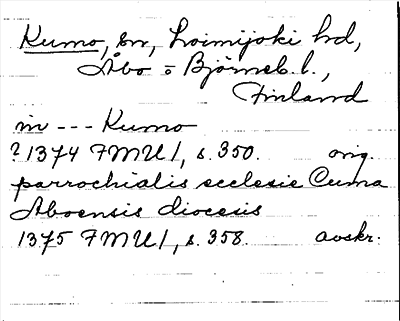 Kumo, sn, Loimijoki hd,
Åbo o Björneb. l.,
Finland
in --- Kumo
? 1374 FMU I, s. 350. orig.
parrochialis ecclesie Cuma
Aboensis diocesis
1375 FMU I, s. 358. avskr.